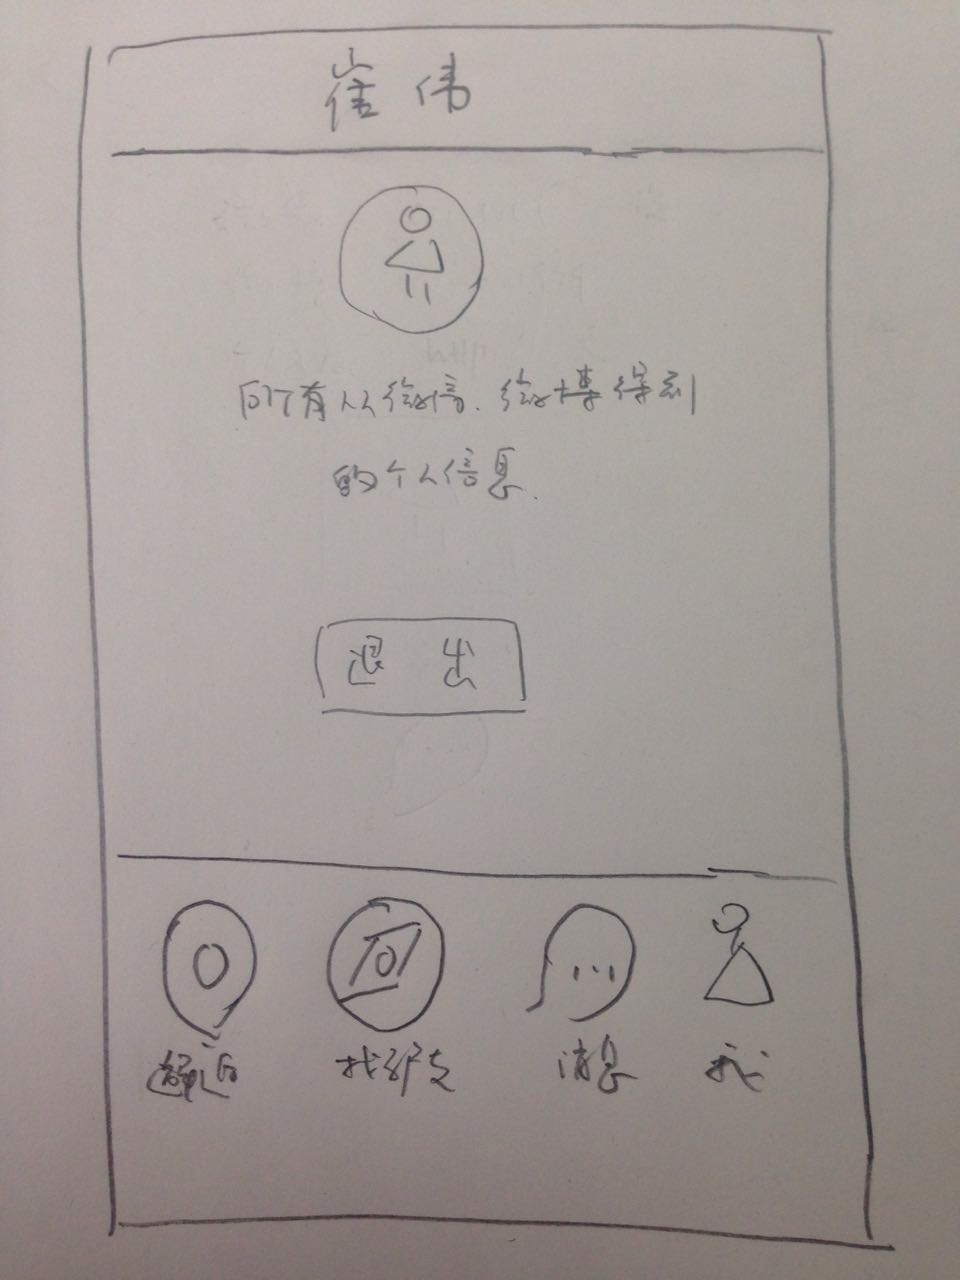 崔伟
所有从微信、微博得到
的个人信息.
退出
邂逅
找驴友
消息
我